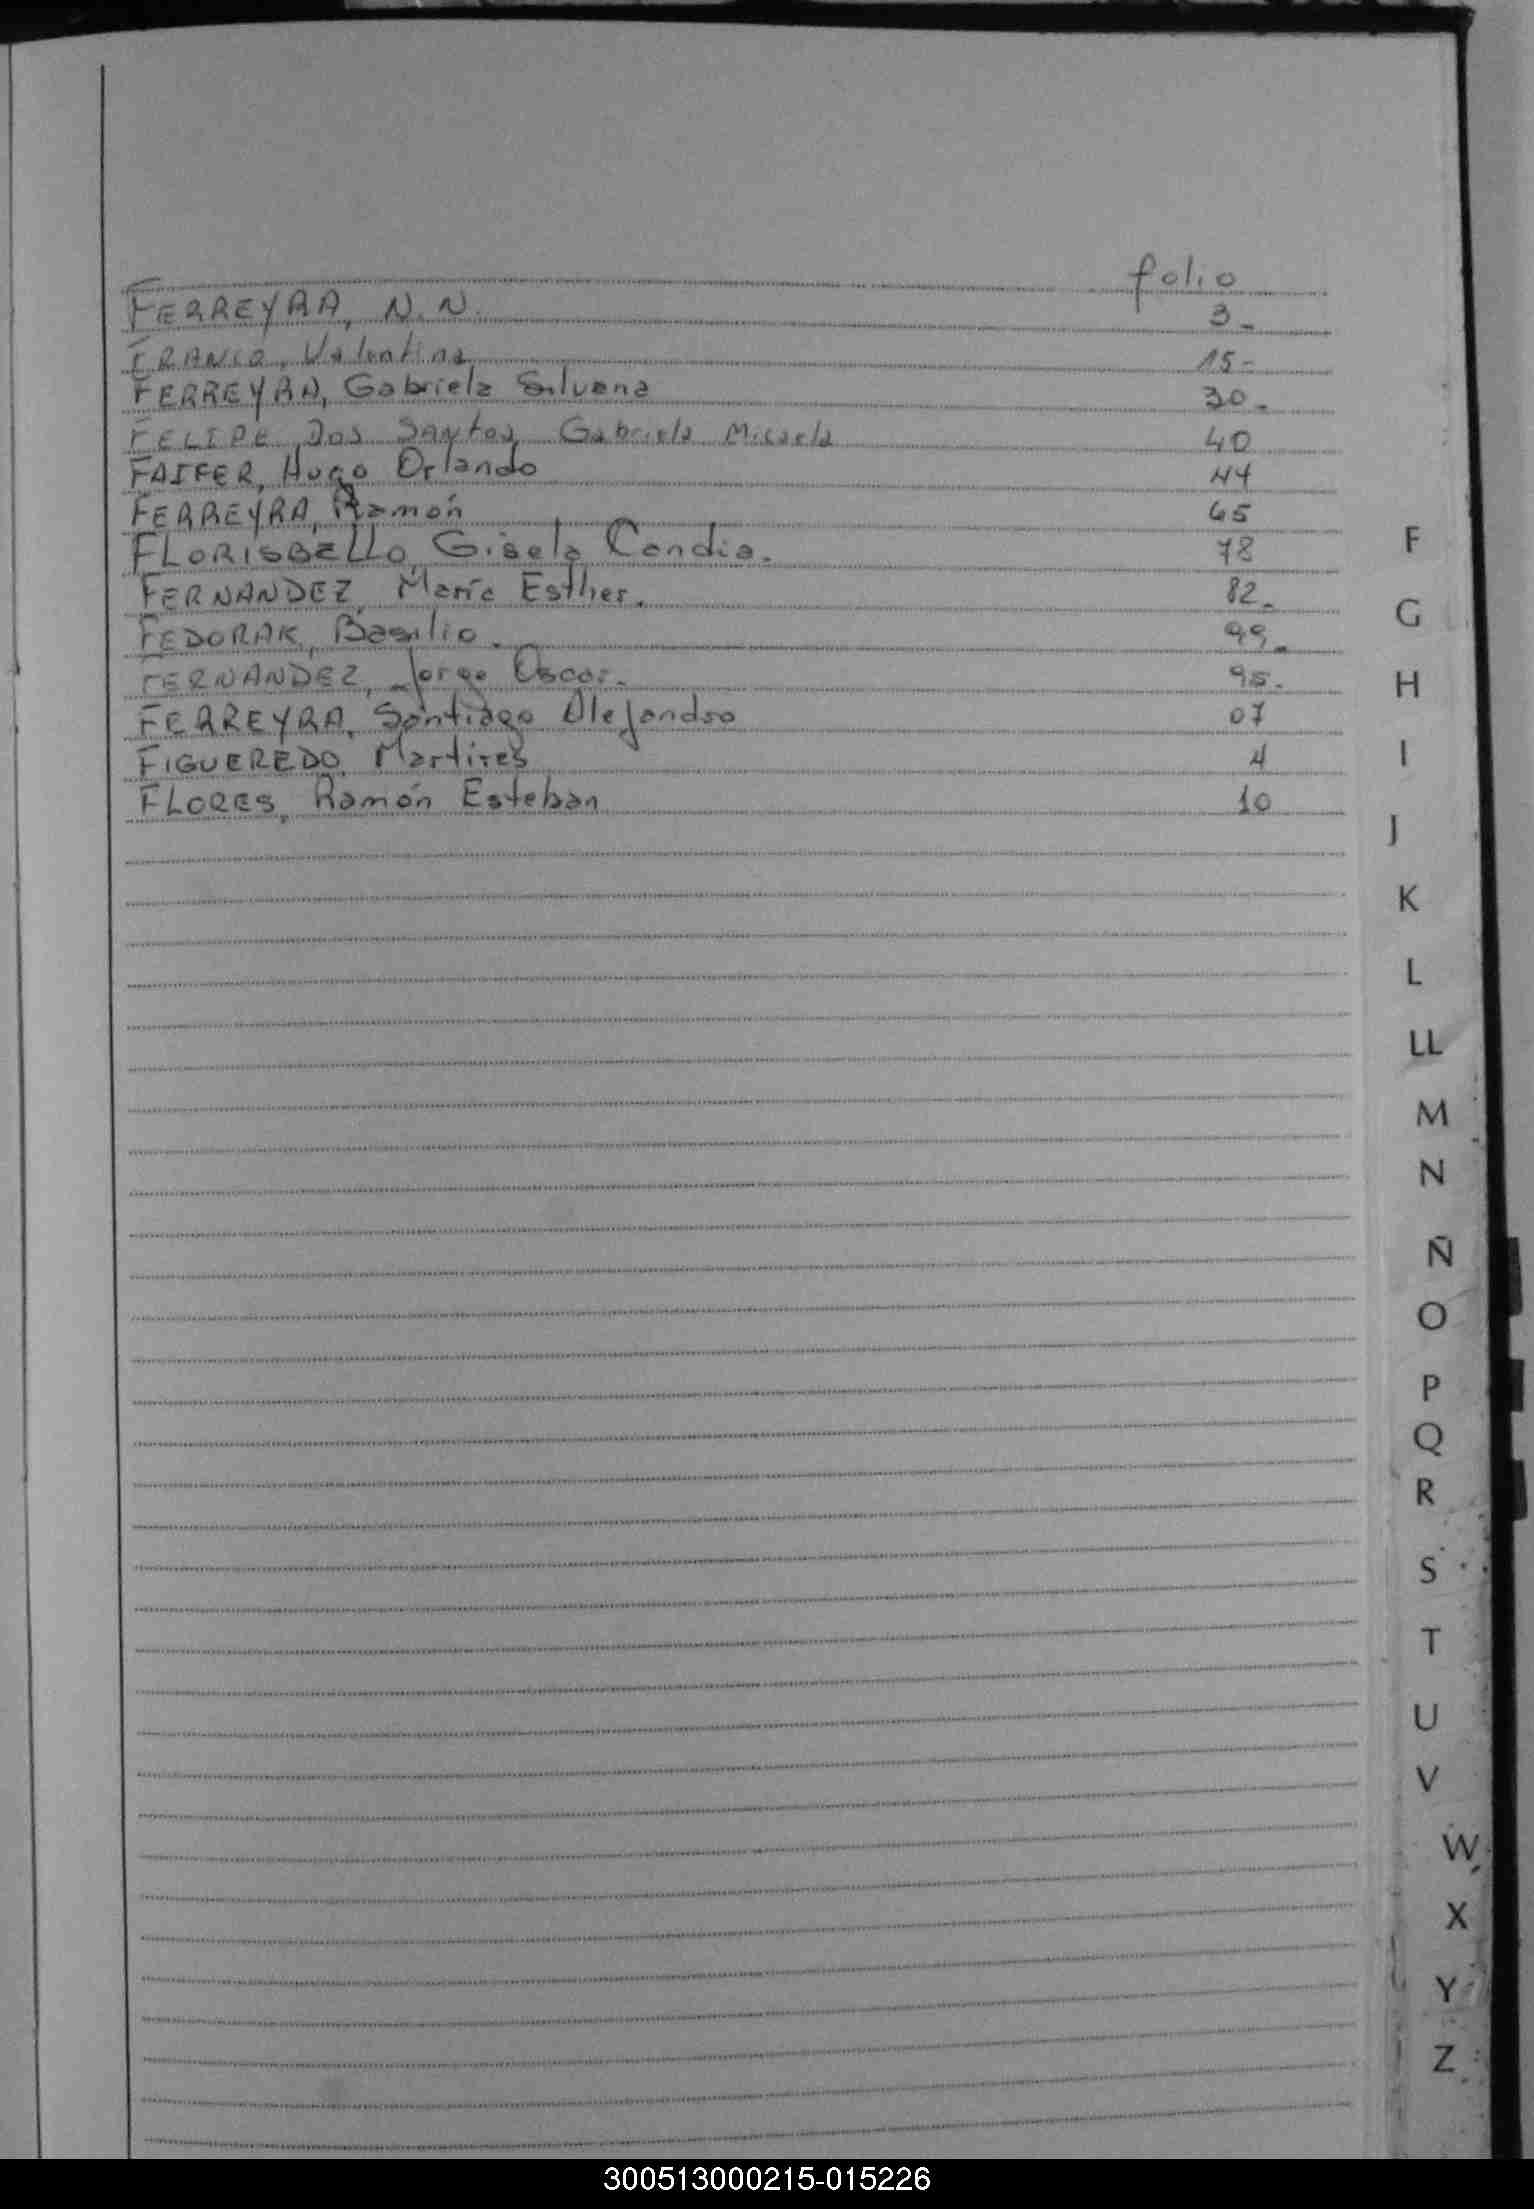 folio
FERREYRA, N. N. 3-
FRANCO, Valentina 15-
FERREYRA, Gabriela Silvana 30-
FELIPE Dos Santos, Gabriela Micaela 40
FAIFER, Hugo Orlando 44
FERREYRA, Ramón 65
FLORISBELLO, Gisela Candia. 78
FERNANDEZ, María Esther. 82-
FEDORAK, Basilio. 99-
FERNANDEZ, Jorge Oscar. 95-
FERREYRA, Santiago Alejandro 07
FIGUEREDO, Martires 4
FLORES, Ramón Esteban 10
F
G
H
I
J
K
L
LL
M
N
Ñ
O
P
Q
R
S
T
U
V
W
X
Y
Z
300513000215-015226